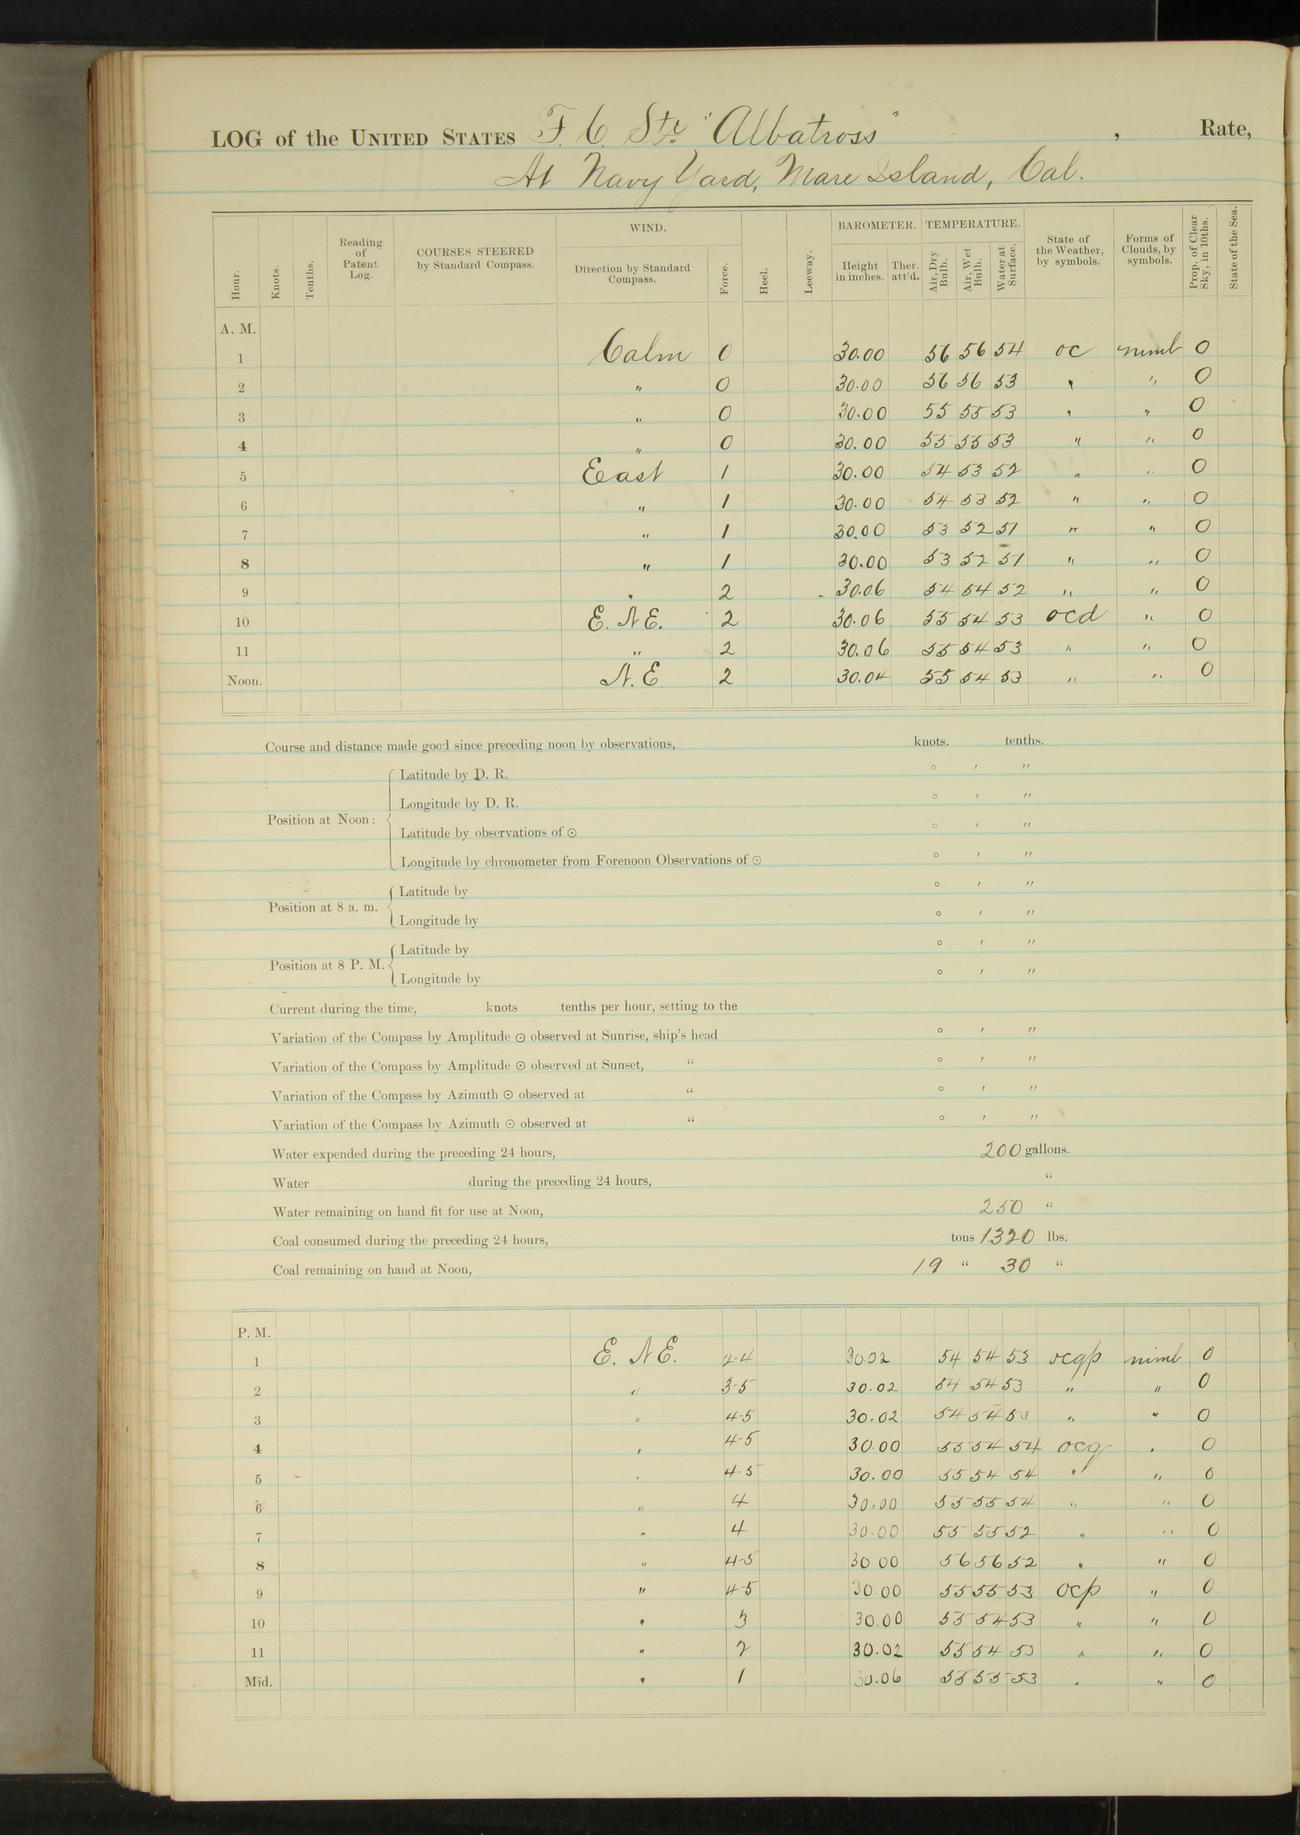 LOG of the UNITED STATES F. C. Str. "Albatross", Rate,
At Navy Yard, Mare Island, Cal.
Hour. Knots. Tenths. Reading of Patent Log. COURSES STEERED by Standard Compass. WIND. Direction by Standard Compass. Force. Heel. Leeway. BAROMETER. Height in inches. Ther. att'd. TEMPERATURE. Air, Dry Bulb. Air, Wet Bulb. Water at Surface. State of the Weather, by symbols. Forms of Clouds, by symbols. Prop. of Clear Sky, in 10ths. State of the Sea.
A. M.
1 Calm 0 30.00 56 56 54 oc nimb 0
2 " 0 30.00 56 56 53 " " 0
3 " 0 30.00 55 55 53 " " 0
4 " 0 30.00 55 55 53 " " 0
5 East 1 30.00 54 53 52 " " 0
6 " 1 30.00 54 53 52 " " 0
7 " 1 30.00 53 52 51 " " 0
8 " 1 30.00 53 52 51 " " 0
9 " 2 30.06 54 54 52 " " 0
10 E. NE. 2 30.06 55 54 53 ocd " 0
11 " 2 30.06 55 54 53 " " 0
Noon. N. E 2 30.04 55 54 53 " " 0
Course and distance made good since preceding noon by observations, knots. tenths.
Latitude by D. R. ° ′ ″
Longitude by D. R. ° ′ ″
Position at Noon:
Latitude by observations of ☉ ° ′ ″
Longitude by chronometer from Forenoon Observations of ☉ ° ′ ″
Latitude by ° ′ ″
Position at 8 a. m.
Longitude by ° ′ ″
Latitude by ° ′ ″
Position at 8 P. M.
Longitude by ° ′ ″
Current during the time, knots tenths per hour, setting to the
Variation of the Compass by Amplitude ☉ observed at Sunrise, ship's head ° ′ ″
Variation of the Compass by Amplitude ☉ observed at Sunset, " ° ′ ″
Variation of the Compass by Azimuth ☉ observed at " ° ′ ″
Variation of the Compass by Azimuth ☉ observed at " ° ′ ″
Water expended during the preceding 24 hours, 200 gallons.
Water during the preceding 24 hours, "
Water remaining on hand fit for use at Noon, 250 "
Coal consumed during the preceding 24 hours, tons 1320 lbs.
Coal remaining on hand at Noon, 19 " 30 "
P. M.
1 E. NE. 2-4 30.02 54 54 53 ocqp nimb 0
2 " 3-5 30.02 54 54 53 " " 0
3 " 4-5 30.02 54 54 53 " " 0
4 " 4-5 30.00 55 54 54 ocq " 0
5 " 4-5 30.00 55 54 54 " " 0
6 " 4 30.00 55 55 54 " " 0
7 " 4 30.00 55 55 52 " " 0
8 " 4-5 30.00 56 56 52 " " 0
9 " 4-5 30.00 55 55 53 ocp " 0
10 " 3 30.00 55 54 53 " " 0
11 " 2 30.02 55 54 53 " " 0
Mid. " 1 30.06 55 55 53 " " 0